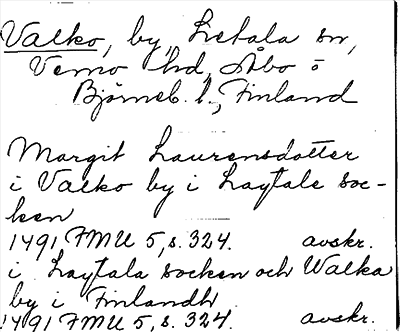 Valko, by, Letala sn,
Vemo hd, Åbo o
Björneb. l., Finland
Margit Laurensdotter
i Valko by i Laytale soc-
ken
1491 FMU 5, s. 324. avskr.
i Laytala socken och Walka
by i Finlandh
1491 FMU 5, s. 324. avskr.